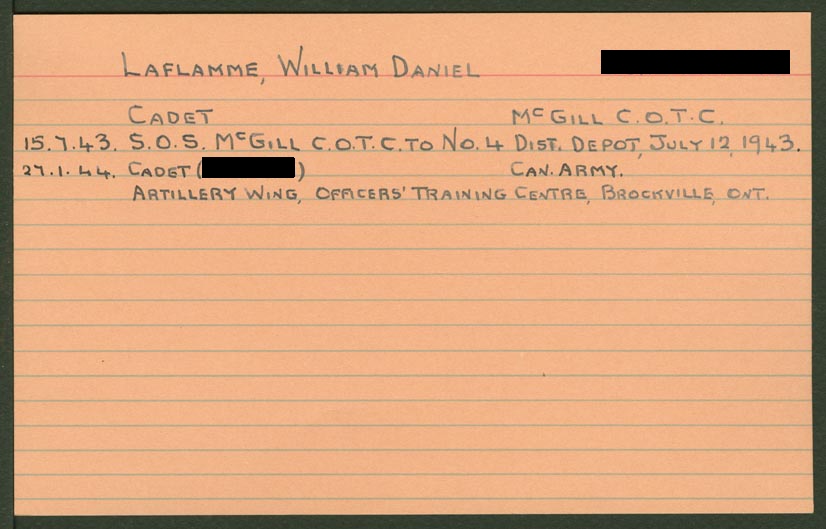 LAFLAMME, WILLIAM DANIEL
CADET McGILL C.O.T.C.
15.7.43. S.O.S. McGILL C.O.T.C. TO No. 4 DIST. DEPOT, JULY 12, 1943.
27.1.44. CADET ( ) CAN. ARMY.
ARTILLERY WING, OFFICERS' TRAINING CENTRE, BROCKVILLE, ONT.